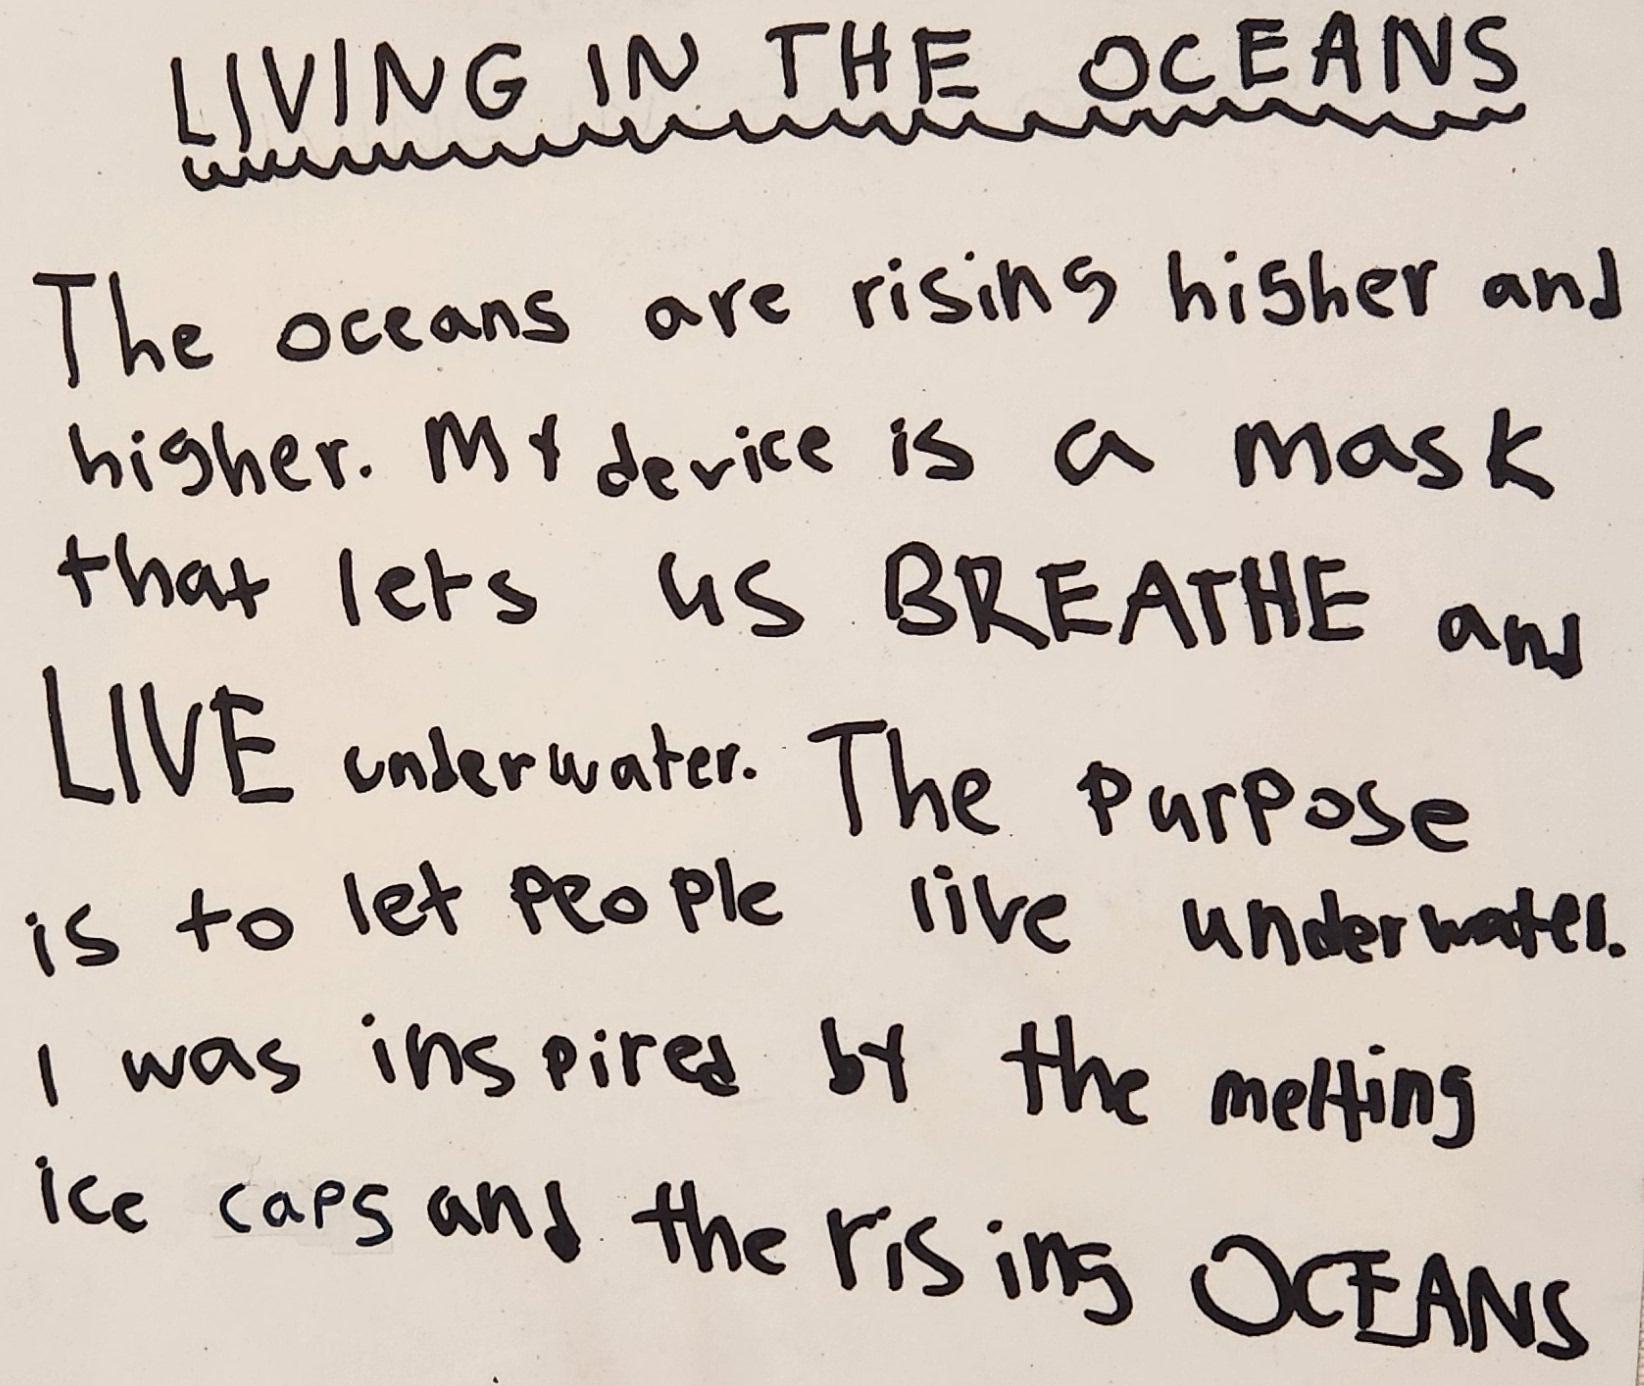 LIVING IN THE OCEANS
The oceans are rising higher and
higher. My device is a mask
that lets us BREATHE and
LIVE underwater. The purpose
is to let people live underwater.
I was inspired by the melting
ice caps and the rising OCEANS